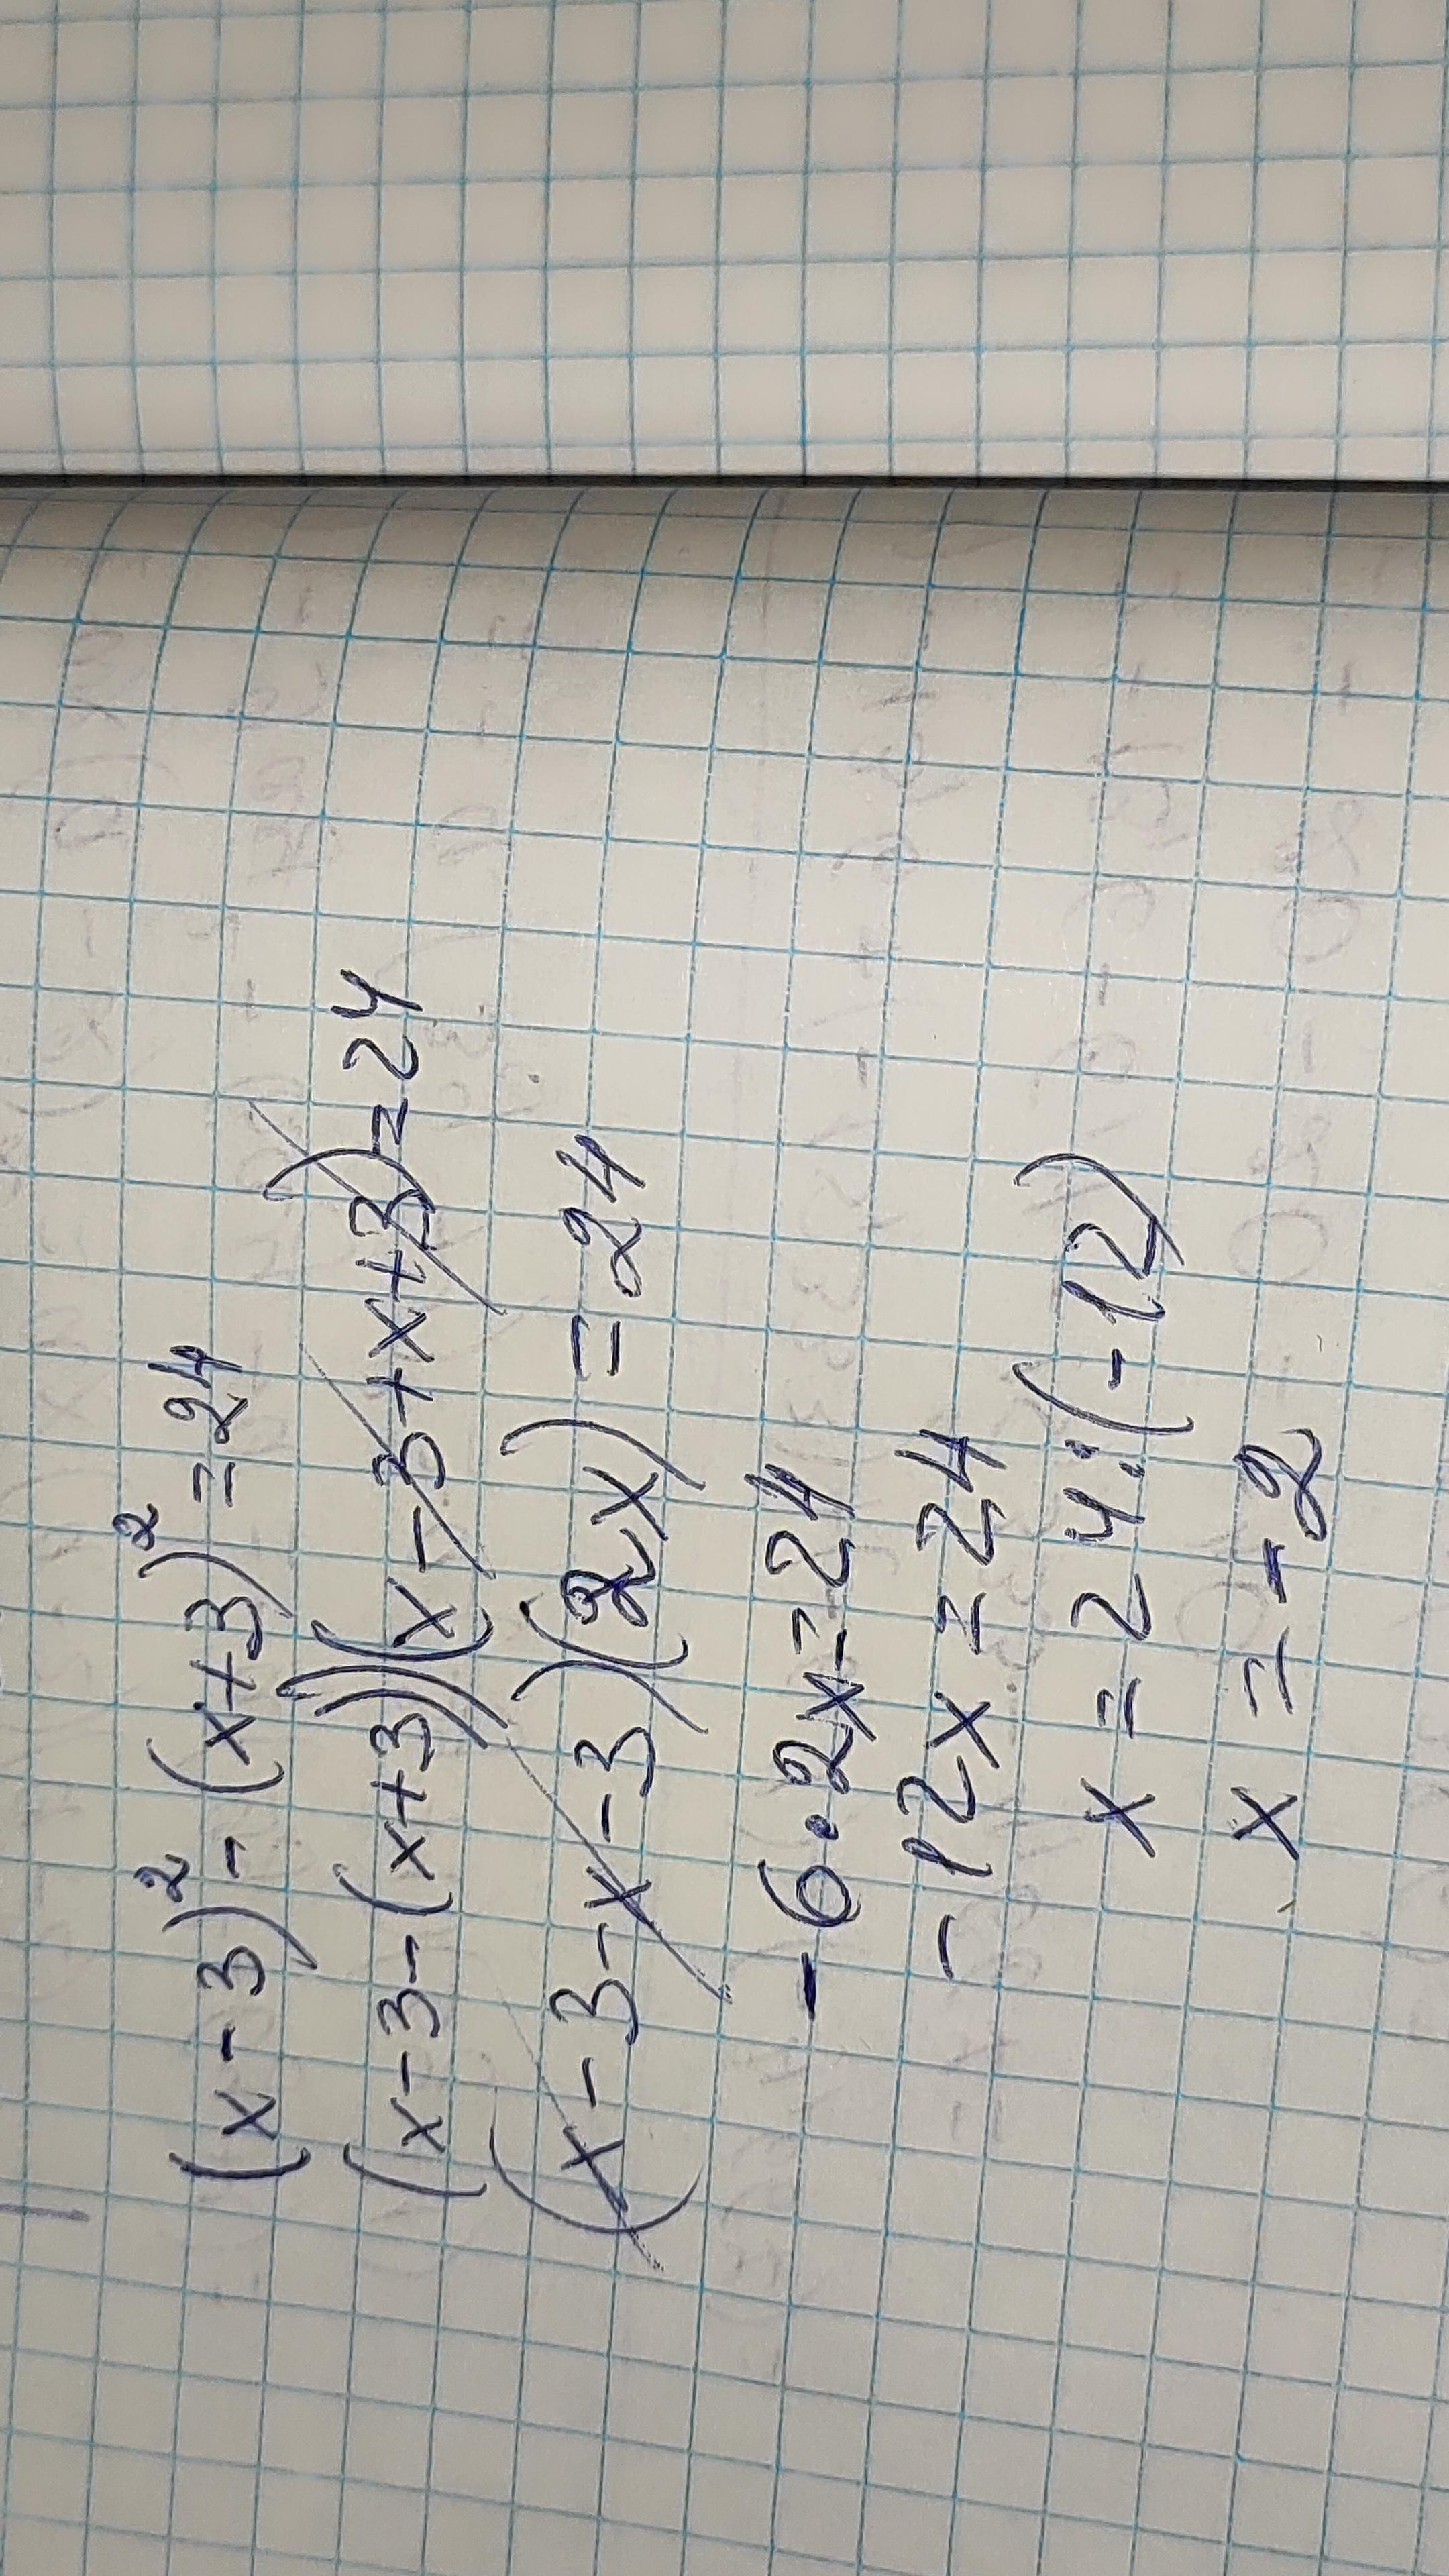 (x-3)²-(x+3)²=24
(x-3-(x+3))(x-3+x+3)=24
(x-3-x-3)(2x)=24
-6·2x=24
-12x=24
x=24:(-12)
x=-2